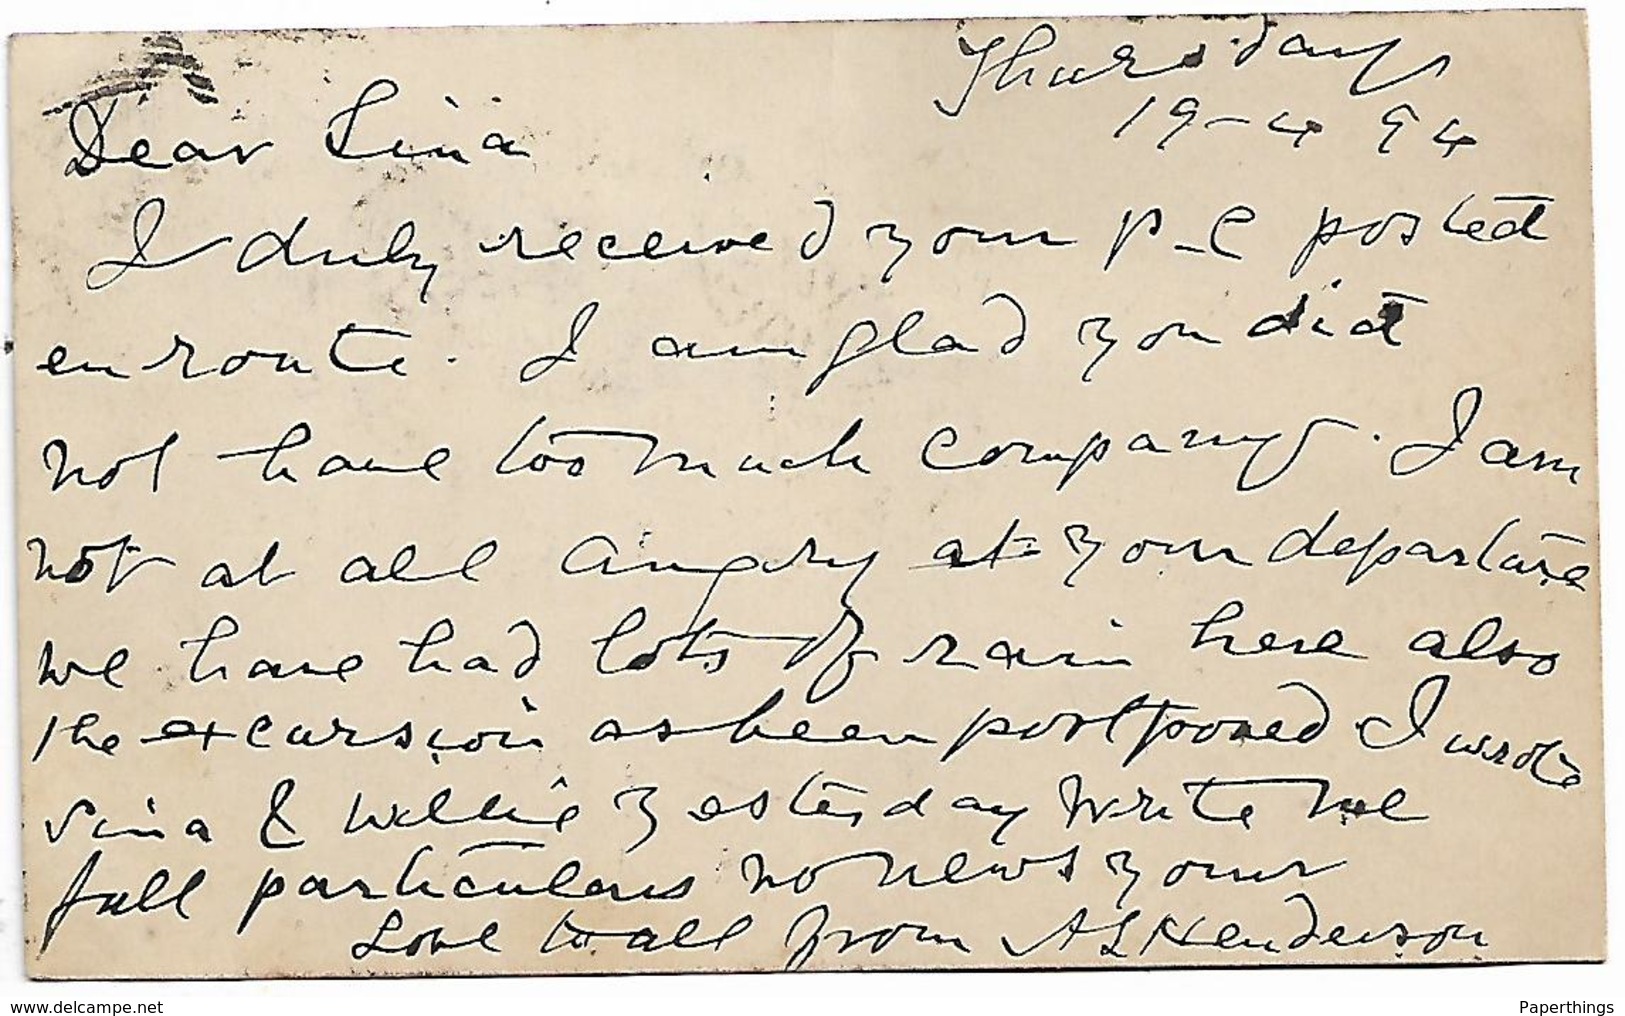 Thursday
19-4 94
Dear Lina
I duly received your p-c posted
en route. I am glad you did
not have too much company. I am
not at all angry at your departure
we have had lots of rain here also
the excursion as been postponed I wrote
Sina & Willie yesterday write me
full particulars no news your
Love to all from A L Henderson
www.delcampe.net
Paperthings